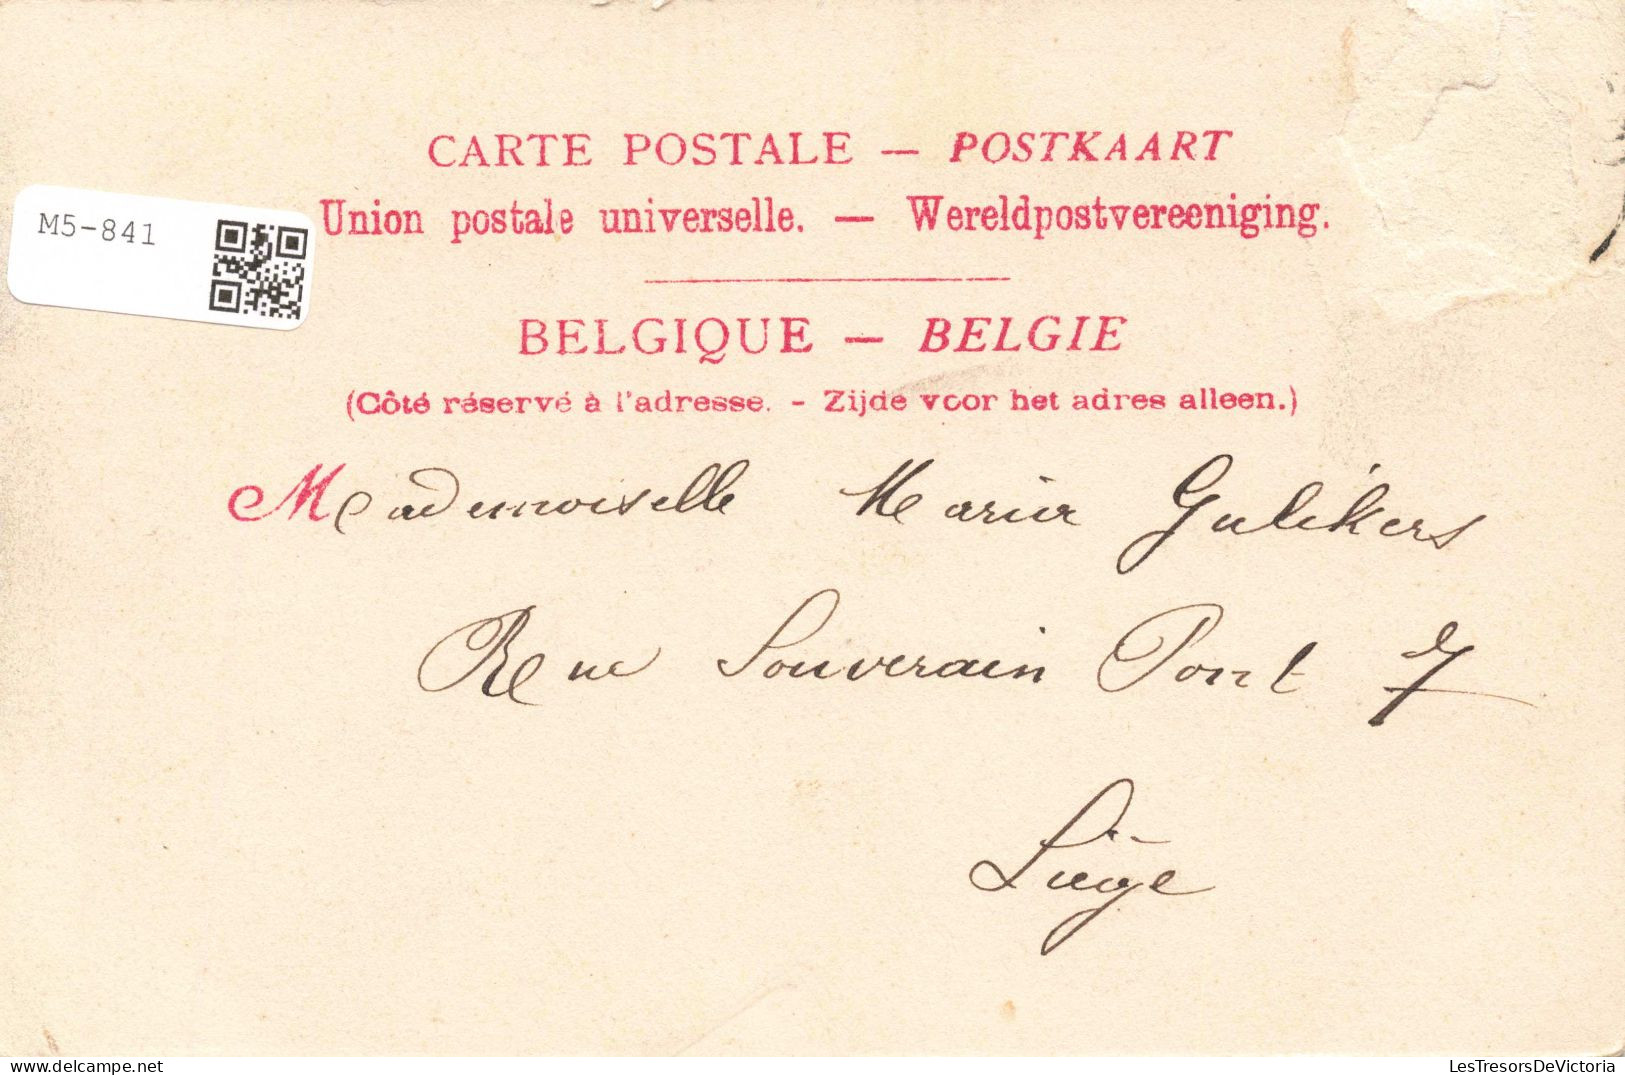 CARTE POSTALE — POSTKAART
M5-841
Union postale universelle. — Wereldpostvereeniging.
BELGIQUE — BELGIE
(Côté réservé à l'adresse. - Zijde voor het adres alleen.)
Mademoiselle Marie Gulikers
Rue Souverain Pont 7
Liège
LesTresorsDeVictoria
www.delcampe.net